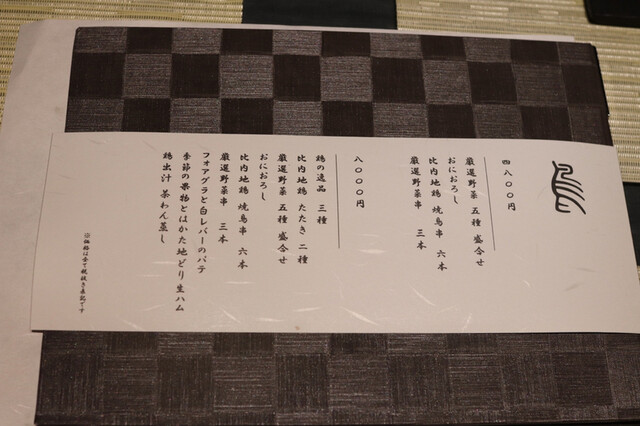 鳥
四八〇〇円
厳選野菜 五種 盛合せ
おにおろし
比内地鶏 焼鳥串 六本
厳選野菜串 三本
八〇〇〇円
鶏の逸品 三種
比内地鶏 たたき 二種
厳選野菜 五種 盛合せ
おにおろし
比内地鶏 焼鳥串 六本
厳選野菜串 三本
フォアグラと白レバーのパテ
季節の果物とはかた地どり生ハム
鶏出汁 茶わん蒸し
※価格は全て税抜き表記です